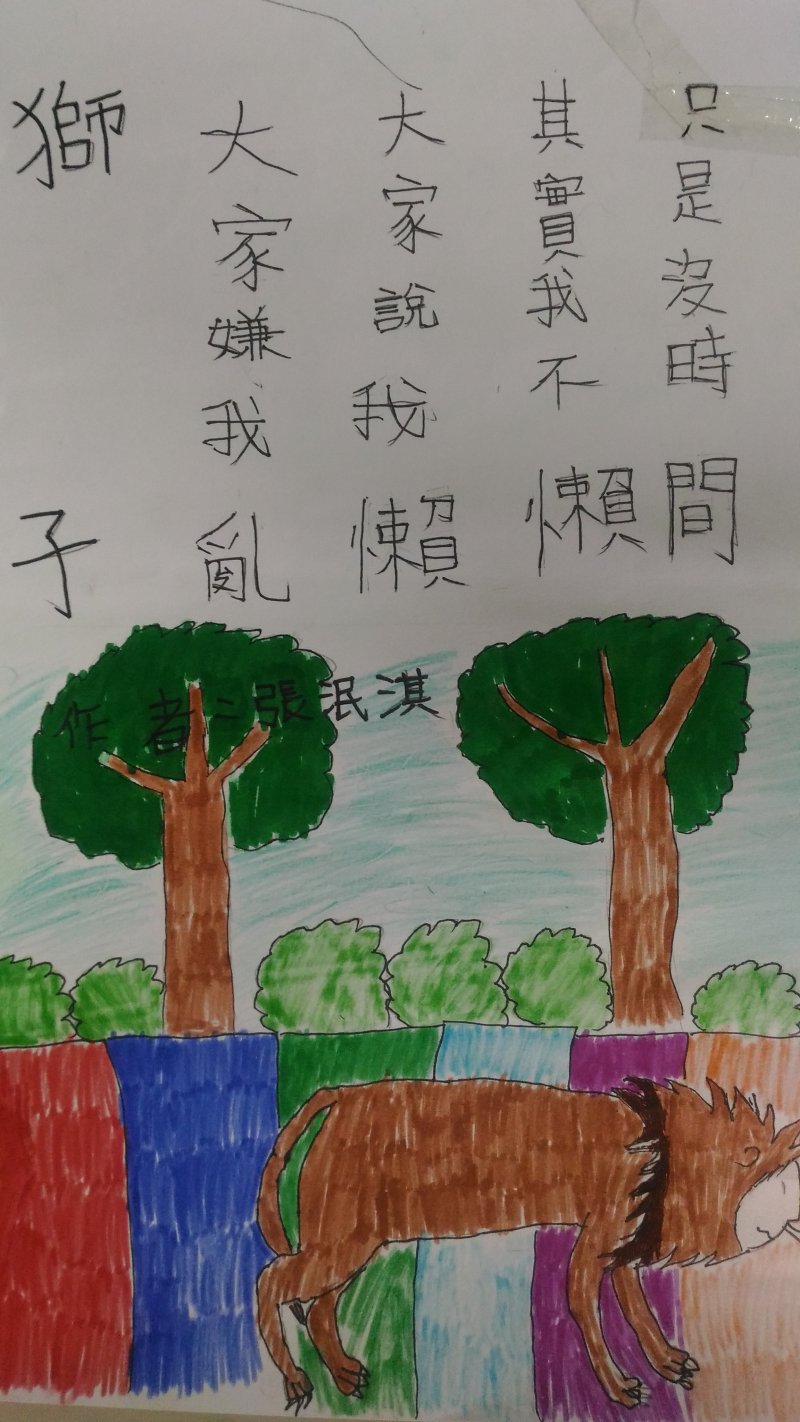 獅子
大家嫌我亂
大家說我懶
其實我不懶
只是沒時間
作者：張泯淇